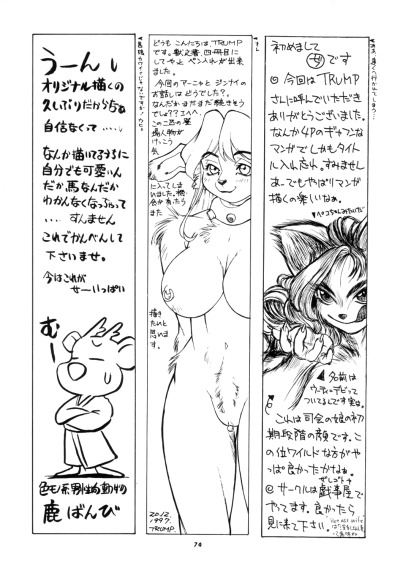 初めまして
です
◎今回はTRUMP
さんに呼んでいただき
ありがとうございました。
なんか4Pのギャフンな
マンガでしかもタイトル
入れ忘れ。すみませんし
あ〜でもやっぱりマンガ
描くの楽しいなぁ。
▲名前は
ウッディ・デビって
ついてるんです実は。
これは司会の娘の初
期段階の顔です。こ
の位ワイルドな方がや
っぱ良かったかなぁ。
◎サークルは戯事屋で
やってます。良かったら
見に来て下さい。
どうもこんにちは、TRUMP
です。獣文書、四冊目に
してやっとペン入れが出来
ました。
今回のアーニャとジンナイの
お話しはどうでした?
なんだかまだまだ続きそう
でしょ??エヘヘ。
この二匹の登
場人物が
けっこう
気
に入ってしま
いました。機
会が有ったら
また
描き
たいと
思いま
す。
20.12.
1997.
TRUMP.
うーんし
オリジナル描くの
久しぶりだからなぁ
自信なくて・・・・・
なんか描いてるうちに
自分でも可愛いん
だか馬なんだか
わかんなくなっちゃって
・・・すんません
これでかんべんして
下さいませ。
今はこれが
せーいっぱい
むー
色モノ系男性的動物
鹿ばんび
74